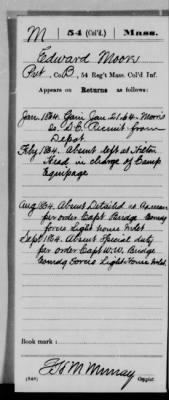 M | 54 (Col'd.) | Mass.
Edward Moon
Pvt., Co. B, 54 Reg't Mass. Col'd Inf.
Appears on Returns as follows:
Jan. 1864. Gain Jan 21. 64. Morris
Is. S.C. Recruit from
Depot
Feby 1864. Absent left at Hilton
Head in charge of Camp
Equipage
Aug 1864. Absent Detailed as
per order Capt. Bridge Comdg
force Light house Inlet
Sept 1864. Absent Special duty
per order Capt W.W. Bridge
Comdg Forces Light House Inlet
Book mark:
Murray
(546) Copyist.